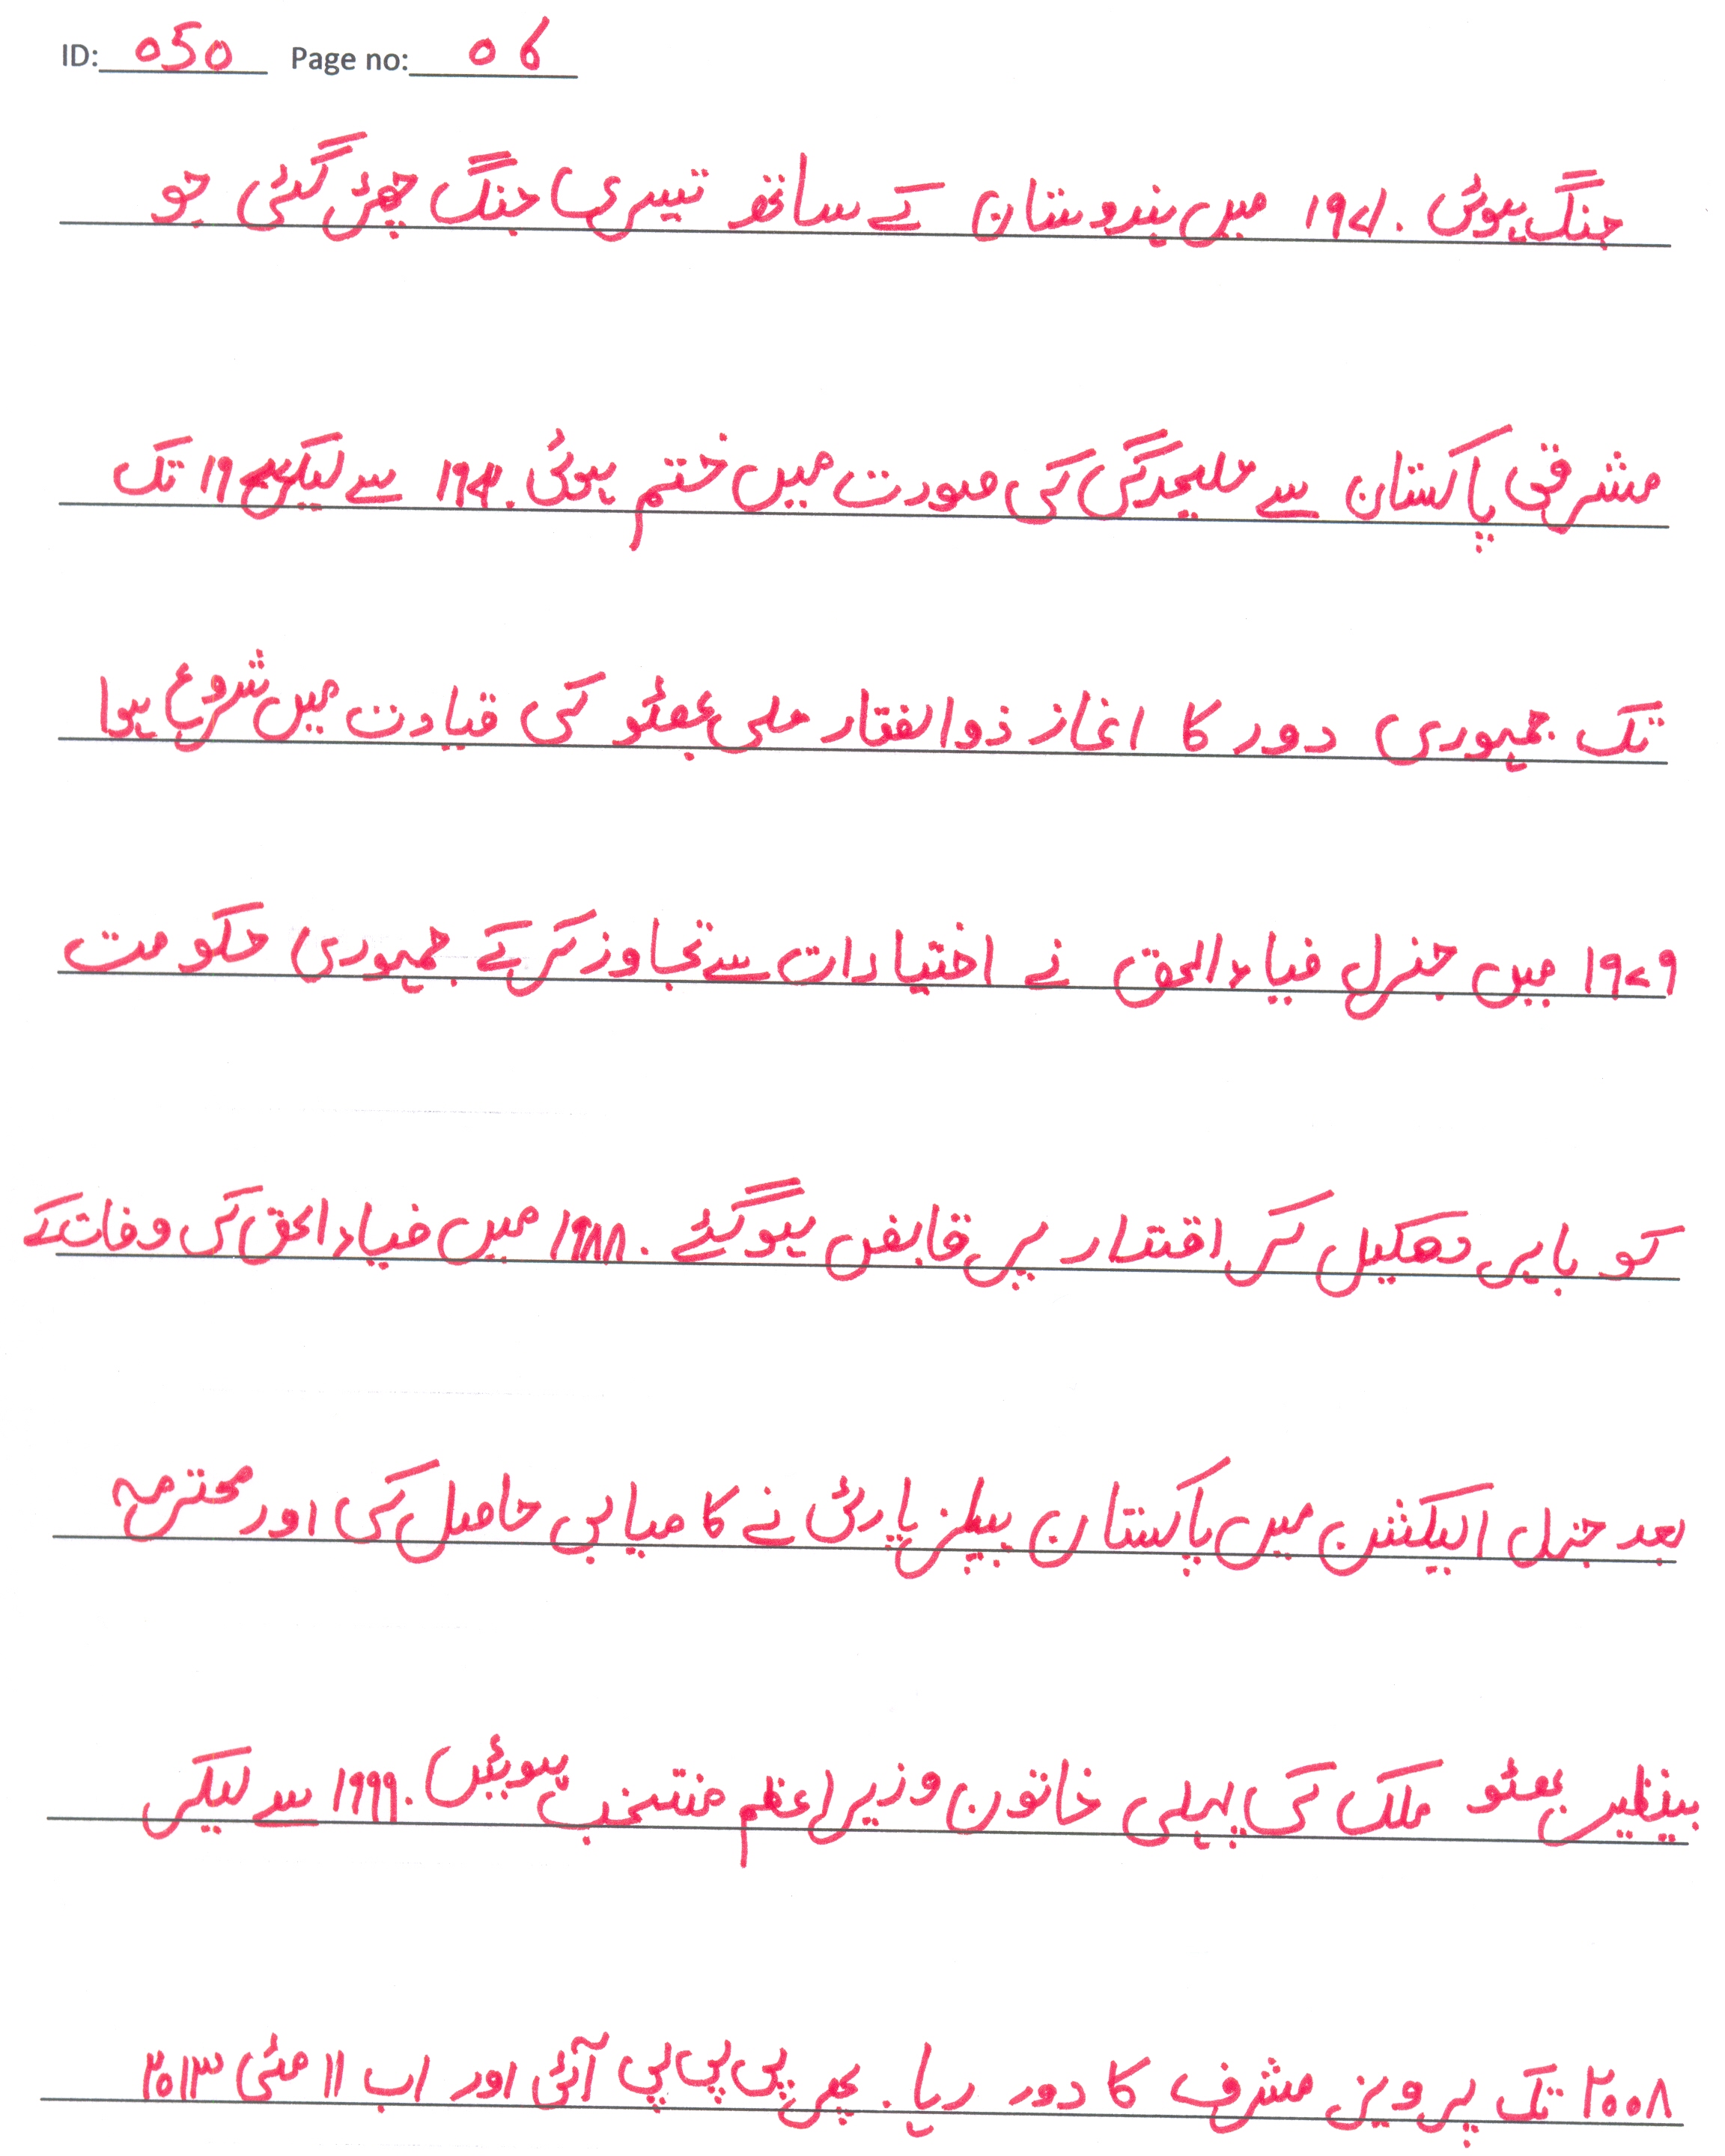 ID: 050 Page no: 06
جنگ ہوئی. ۱۹۷۱ میں ہندوستان کے ساتھ تیسری جنگ چھڑ گئی جو
مشرقی پاکستان سے علیحدگی کی صورت میں ختم ہوئی. ۱۹۷۲ سے لیکر ۱۹ تک
تک جمہوری دور کا اغاز ذوالفقار علی بھٹو کی قیادت میں شروع ہوا
۱۹۷۹ میں جنرل ضیاءالحق نے اختیارات سے تجاوز کر کے جمہوری حکومت
کو باہر دھکیل کر اقتدار پر قابض ہوگئے. ۱۹۸۸ میں ضیاءالحق کی وفات کے
بعد جنرل الیکشن میں پاکستان پیپلز پارٹی نے کامیابی حاصل کی اور محترمہ
بینظیر بھٹو ملک کی پہلی خاتون وزیراعظم منتخب ہوئیں. ۱۹۹۹ سے لیکر
۲۰۰۸ تک پرویز مشرف کا دور رہا. پھر پی پی پی آئی اور اب ۱۱ مئی ۲۰۱۳